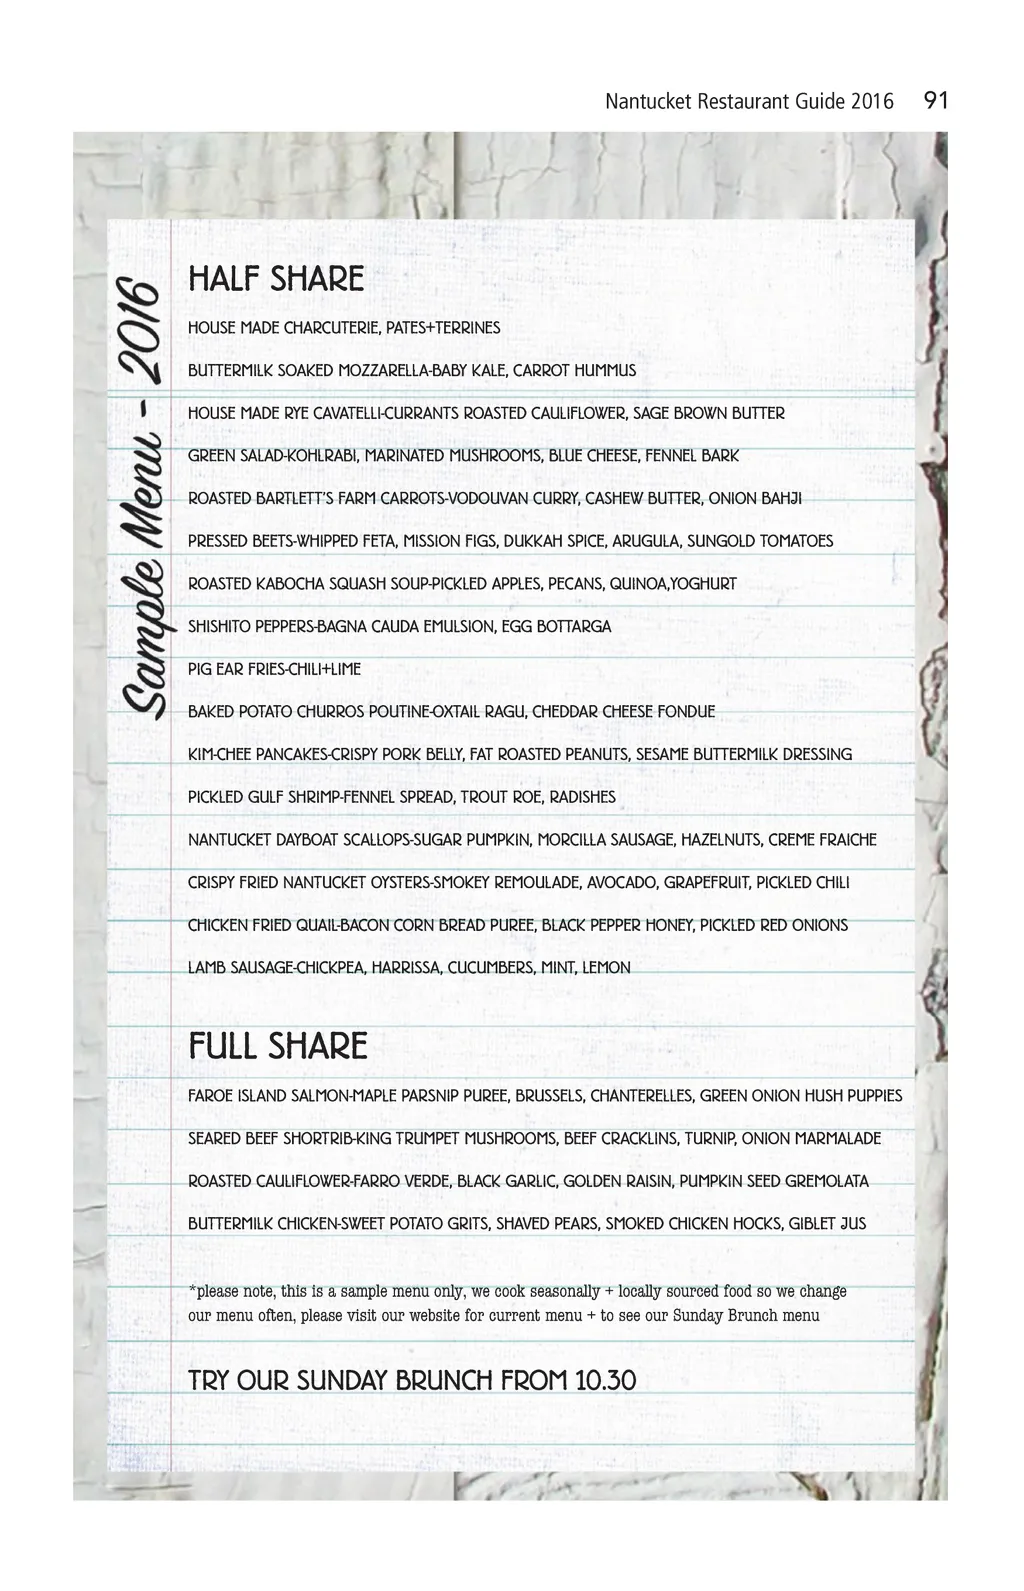 Nantucket Restaurant Guide 2016 91
Sample Menu - 2016
HALF SHARE
HOUSE MADE CHARCUTERIE, PATES+TERRINES
BUTTERMILK SOAKED MOZZARELLA-BABY KALE, CARROT HUMMUS
HOUSE MADE RYE CAVATELLI-CURRANTS ROASTED CAULIFLOWER, SAGE BROWN BUTTER
GREEN SALAD-KOHLRABI, MARINATED MUSHROOMS, BLUE CHEESE, FENNEL BARK
ROASTED BARTLETT'S FARM CARROTS-VODOUVAN CURRY, CASHEW BUTTER, ONION BAHJI
PRESSED BEETS-WHIPPED FETA, MISSION FIGS, DUKKAH SPICE, ARUGULA, SUNGOLD TOMATOES
ROASTED KABOCHA SQUASH SOUP-PICKLED APPLES, PECANS, QUINOA,YOGHURT
SHISHITO PEPPERS-BAGNA CAUDA EMULSION, EGG BOTTARGA
PIG EAR FRIES-CHILI+LIME
BAKED POTATO CHURROS POUTINE-OXTAIL RAGU, CHEDDAR CHEESE FONDUE
KIM-CHEE PANCAKES-CRISPY PORK BELLY, FAT ROASTED PEANUTS, SESAME BUTTERMILK DRESSING
PICKLED GULF SHRIMP-FENNEL SPREAD, TROUT ROE, RADISHES
NANTUCKET DAYBOAT SCALLOPS-SUGAR PUMPKIN, MORCILLA SAUSAGE, HAZELNUTS, CREME FRAICHE
CRISPY FRIED NANTUCKET OYSTERS-SMOKEY REMOULADE, AVOCADO, GRAPEFRUIT, PICKLED CHILI
CHICKEN FRIED QUAIL-BACON CORN BREAD PUREE, BLACK PEPPER HONEY, PICKLED RED ONIONS
LAMB SAUSAGE-CHICKPEA, HARRISSA, CUCUMBERS, MINT, LEMON
FULL SHARE
FAROE ISLAND SALMON-MAPLE PARSNIP PUREE, BRUSSELS, CHANTERELLES, GREEN ONION HUSH PUPPIES
SEARED BEEF SHORTRIB-KING TRUMPET MUSHROOMS, BEEF CRACKLINS, TURNIP, ONION MARMALADE
ROASTED CAULIFLOWER-FARRO VERDE, BLACK GARLIC, GOLDEN RAISIN, PUMPKIN SEED GREMOLATA
BUTTERMILK CHICKEN-SWEET POTATO GRITS, SHAVED PEARS, SMOKED CHICKEN HOCKS, GIBLET JUS
*please note, this is a sample menu only, we cook seasonally + locally sourced food so we change
our menu often, please visit our website for current menu + to see our Sunday Brunch menu
TRY OUR SUNDAY BRUNCH FROM 10.30